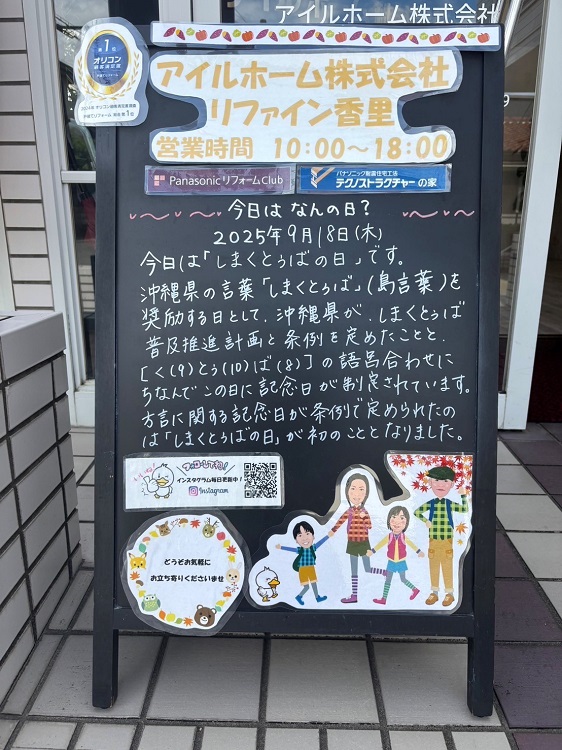 アイルホーム株式会社
第1位
オリコン
顧客満足度
アイルホーム株式会社
リファイン香里
営業時間 10:00～18:00
Panasonic リフォームClub
パナソニック耐震住宅工法
テクノストラクチャーの家
今日は なんの日？
2025年9月18日(木)
今日は「しまくとぅばの日」です。
沖縄県の言葉「しまくとぅば」(島言葉)を
奨励する日として、沖縄県が、しまくとぅば
普及推進計画と条例を定めたことと、
[く(9)とぅ(10)ば(8)]の語呂合わせに
ちなんでこの日に記念日が制定されています。
方言に関する記念日が条例で定められたの
は「しまくとぅばの日」が初のこととなりました。
フォローしてね!
インスタグラム毎日更新中!
Instagram
どうぞお気軽に
お立ち寄りくださいませ